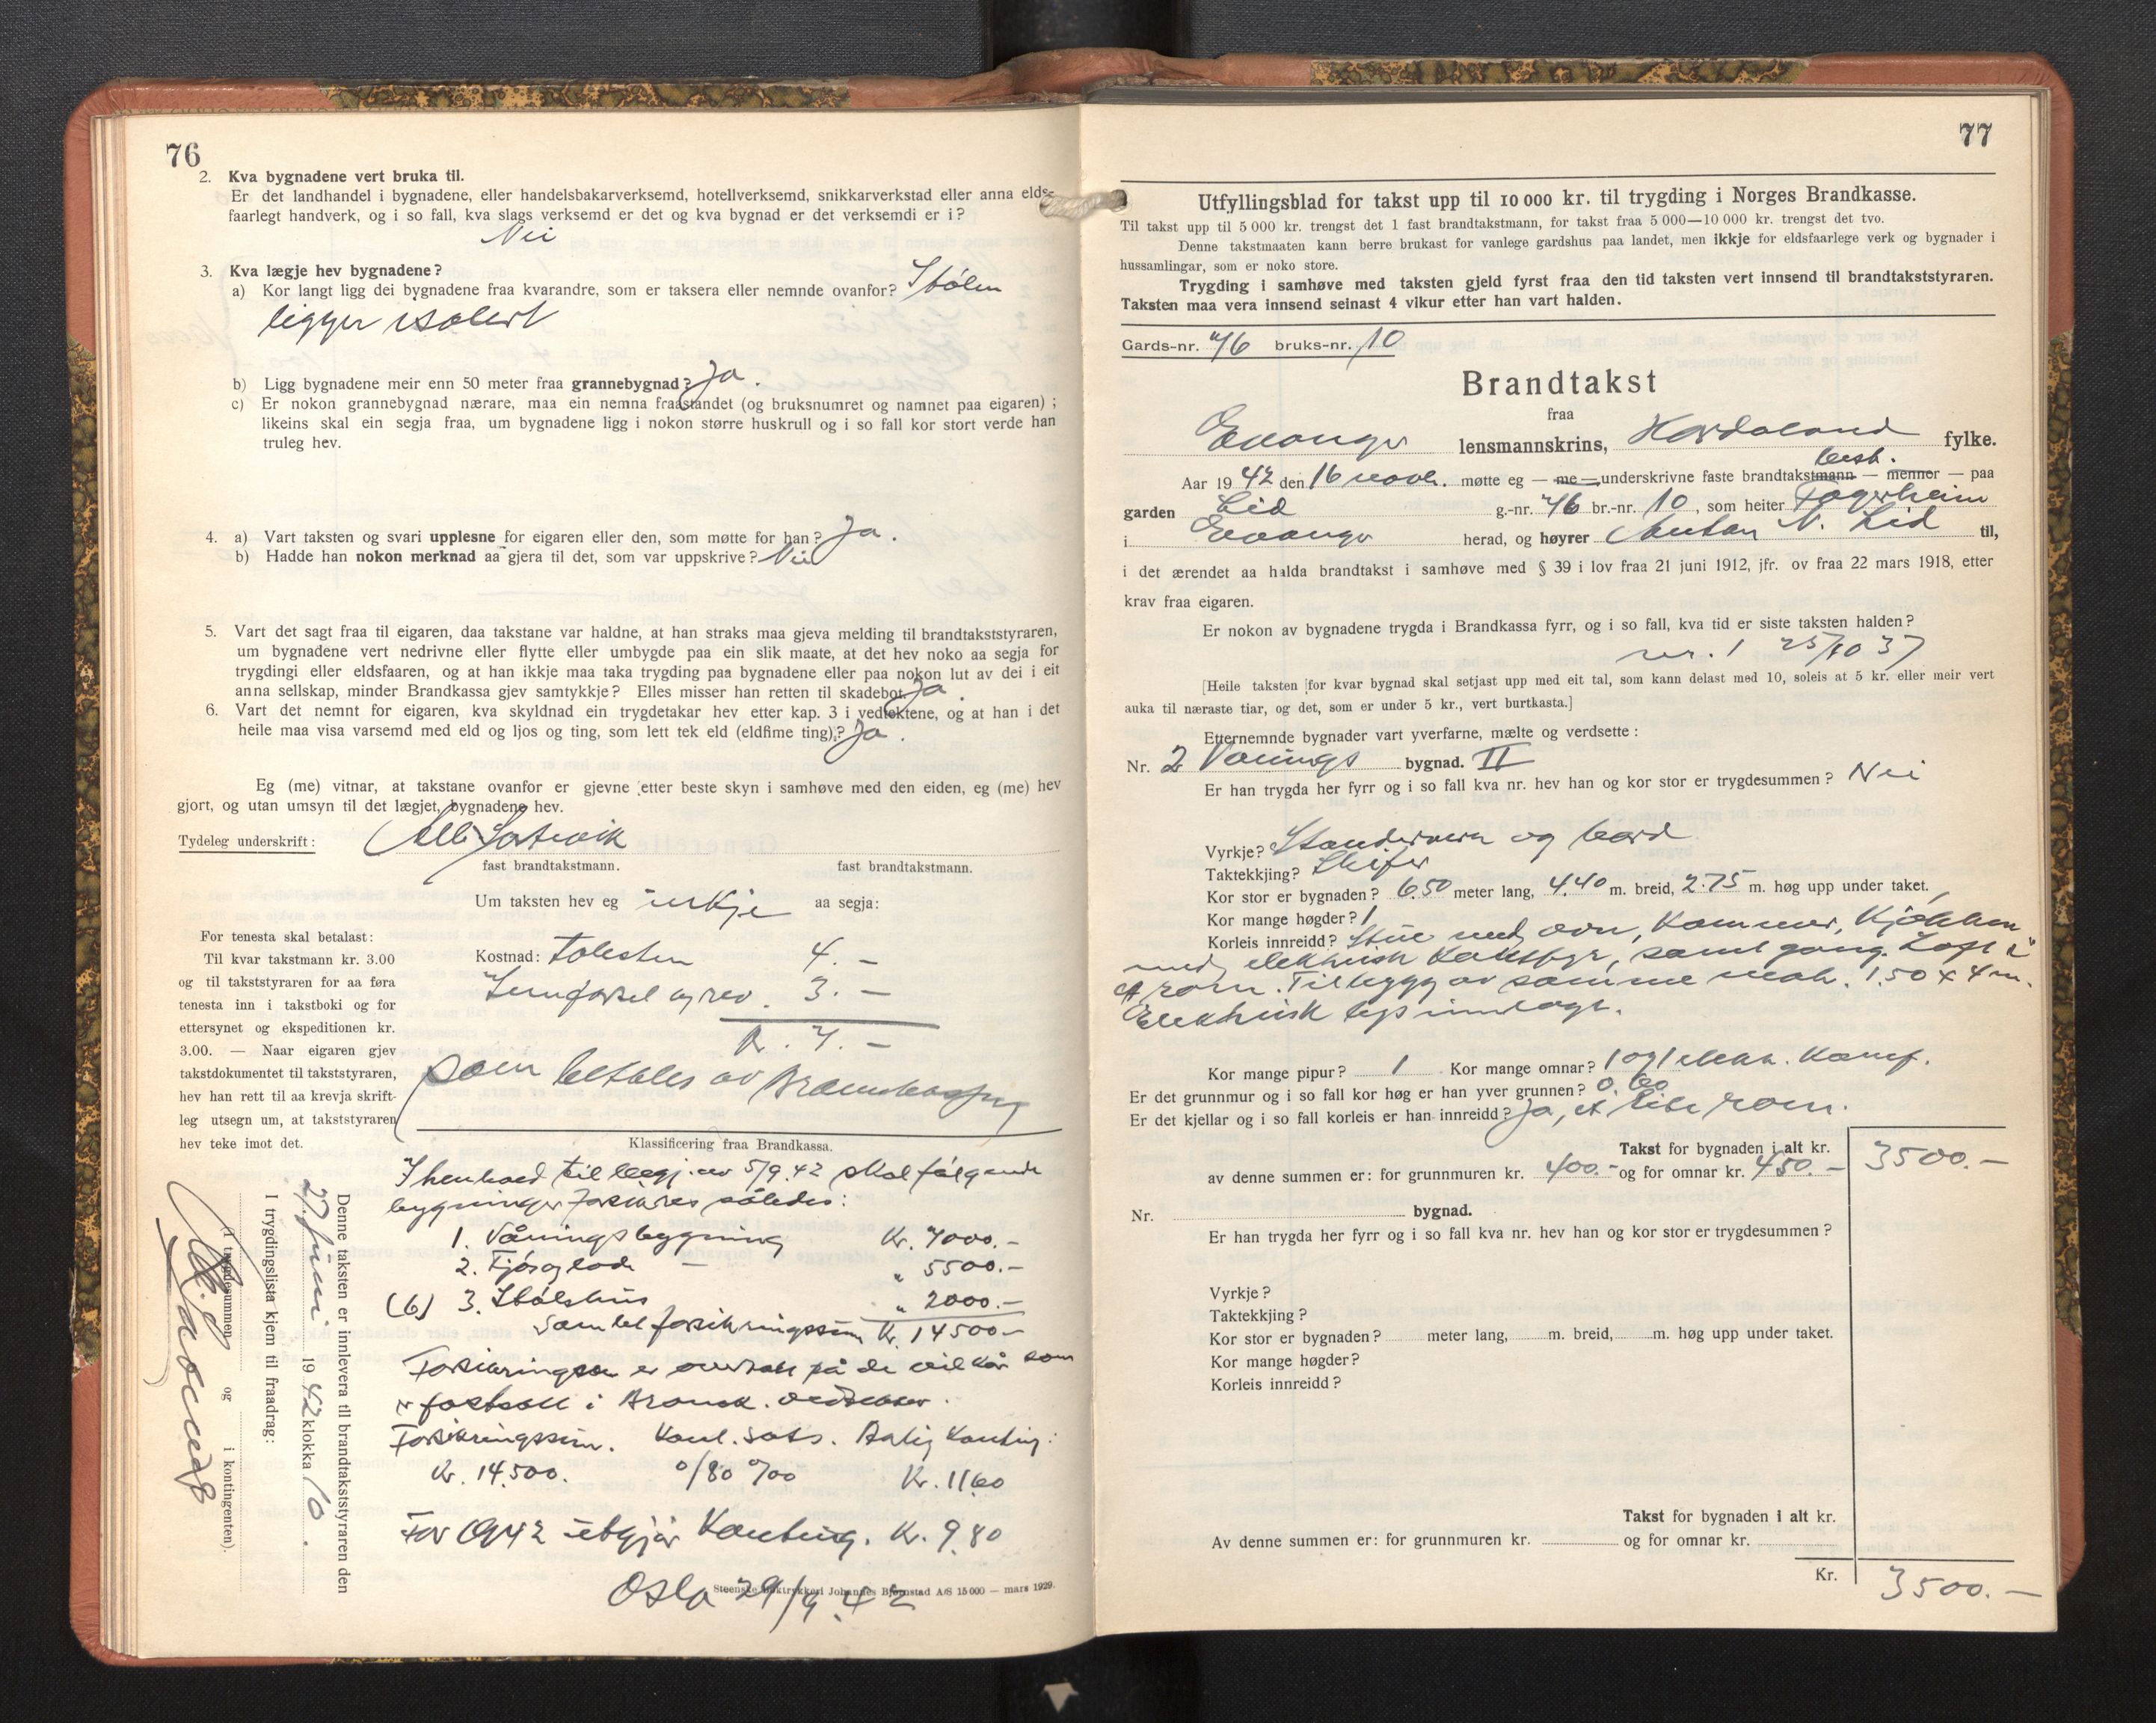 76
2. Kva bygnadene vert bruka til.
Er det landhandel i bygnadene, eller handelsbakarverksemd, hotellverksemd, snikkarverkstad eller anna elds-
faarlegt handverk, og i so fall, kva slags verksemd er det og kva bygnad er det verksemdi er i?
Nei
3. Kva lægje hev bygnadene?
a) Kor langt ligg dei bygnadene fraa kvarandre, som er taksera eller nemnde ovanfor? Stölen
ligger isolert
b) Ligg bygnadene meir enn 50 meter fraa grannebygnad? Ja.
c) Er nokon grannebygnad nærare, maa ein nemna fraastandet (og bruksnumret og namnet paa eigaren);
likeins skal ein segja fraa, um bygnadene ligg i nokon større huskrull og i so fall kor stort verde han
truleg hev.
4. a) Vart taksten og svari upplesne for eigaren eller den, som møtte for han? Ja.
b) Hadde han nokon merknad aa gjera til det, som var uppskrive? Nei
5. Vart det sagt fraa til eigaren, daa takstane var haldne, at han straks maa gjeva melding til brandtakststyraren,
um bygnadene vert nedrivne eller flytte eller umbygde paa ein slik maate, at det hev noko aa segja for
trygdingi eller eldsfaaren, og at han ikkje maa taka trygding paa bygnadene eller paa nokon lut av dei i eit
anna sellskap, minder Brandkassa gjev samtykkje? Elles misser han retten til skadebot. Ja.
6. Vart det nemnt for eigaren, kva skyldnad ein trygdetakar hev etter kap. 3 i vedtektene, og at han i det
heile maa visa varsemd med eld og ljos og ting, som lett tek eld (eldfime ting)? Ja.
Eg (me) vitnar, at takstane ovanfor er gjevne etter beste skyn i samhøve med den eiden, eg (me) hev
gjort, og utan umsyn til det lægjet, bygnadene hev.
Tydeleg underskrift:
fast brandtakstmann. fast brandtakstmann.
Um taksten hev eg inkje aa segja:
For tenesta skal betalast:
Til kvar takstmann kr. 3.00
og til takststyraren for aa føra
tenesta inn i takstboki og for
ettersynet og ekspeditionen kr.
3.00. — Naar eigaren gjev
takstdokumentet til takststyraren,
hev han rett til aa krevja skrift-
leg utsegn um, at takststyraren
hev teke imot det.
Kostnad: taksten 4.—
3.—
Kr. 7.—
som betales av
Klassificering fraa Brandkassa.
I henhold til begj. av 5/9.42 skal følgende
bygninger forsikres således:
1. Våningsbygning Kr. 7000.—
2. Fjös og lade — " 5500.—
(6) 3. Stölshus " 2000.—
Samlet forsikringssum Kr. 14500—
Forsikringen er overtatt på de vilkår som
er fastsatt i Brannk. vedtekter.
Forsikringssum. Kont. sats. Aarlig Konting:
Kr. 14.500. 0/80 ‰ Kr. 11.60
For 1942 utgjør Konting. Kr. 9.80
Oslo 29/9.42
Steenske Boktrykkeri Johannes Bjørnstad A/S 15000 — mars 1929.
Denne taksten er innlevera til brandtakststyraren den
27 juni 1942 klokka 10.
I trygdingslista kjem til fraadrag:
(I trygdesummen og i kontingenten).
77
Utfyllingsblad for takst upp til 10 000 kr. til trygding i Norges Brandkasse.
Til takst upp til 5 000 kr. trengst det 1 fast brandtakstmann, for takst fraa 5 000—10 000 kr. trengst det tvo.
Denne takstmaaten kann berre brukast for vanlege gardshus paa landet, men ikkje for eldsfaarlege verk og bygnader i
hussamlingar, som er noko store.
Trygding i samhøve med taksten gjeld fyrst fraa den tid taksten vert innsend til brandtakststyraren.
Taksten maa vera innsend seinast 4 vikur etter han vart halden.
Gards-nr. 46 bruks-nr. 10
Brandtakst
fraa
Evanger lensmannskrins, Hordaland fylke.
best.
Aar 1942 den 16 novbr. møtte eg — me — underskrivne faste brandtakstmann — menner — paa
garden Lid g.-nr. 46 br.-nr. 10, som heiter Fagerheim
i Evanger herad, og høyrer Anton N. Lid til,
i det ærendet aa halda brandtakst i samhøve med § 39 i lov fraa 21 juni 1912, jfr. ov fraa 22 mars 1918, etter
krav fraa eigaren.
Er nokon av bygnadene trygda i Brandkassa fyrr, og i so fall, kva tid er siste taksten halden?
nr. 1 25/10 37
[Heile taksten for kvar bygnad skal setjast upp med eit tal, som kann delast med 10, soleis at 5 kr. eller meir vert
auka til næraste tiar, og det, som er under 5 kr., vert burtkasta.]
Etternemnde bygnader vart yverfarne, mælte og verdsette:
Nr. 2 Vånings bygnad. II
Er han trygda her fyrr og i so fall kva nr. hev han og kor stor er trygdesummen? Nei
Vyrkje? Standerverk og bord
Taktekkjing? Skifer
Kor stor er bygnaden? 6.50 meter lang, 4.40 m. breid, 2.75 m. høg upp under taket.
Kor mange høgder? 1
Korleis innreidd? Stue med ovn, kammer, kjøkken
med elektrisk komfyr, samt gang. Loft i
et rom. Tilbygg av samme mat. 1.50 x 4 m.
Elektrisk lys innlagt.
Kor mange pipur? 1 Kor mange omnar? 1 og 1 elektr. komf.
Er det grunnmur og i so fall kor høg er han yver grunnen? 0.60
Er det kjellar og i so fall korleis er han innreidd? Ja, et lite rom.
Takst for bygnaden i alt kr. 3500.—
av denne summen er: for grunnmuren kr. 400.— og for omnar kr. 450.—
Nr. bygnad.
Er han trygda her fyrr og i so fall kva nr. hev han og kor stor er trygdesummen?
Vyrkje?
Taktekkjing?
Kor stor er bygnaden? meter lang, m. breid, m. høg upp under taket.
Kor mange høgder?
Korleis innreidd?
Takst for bygnaden i alt kr.
Av denne summen er: for grunnmuren kr. og for omnar kr.
Kr. 3500.—